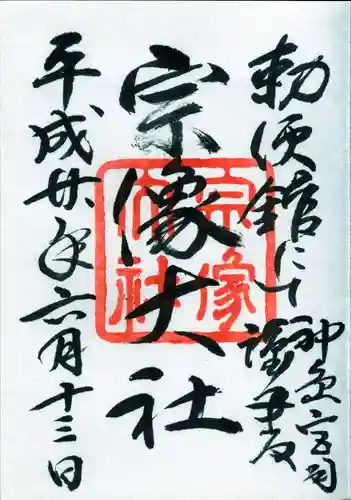 勅使館にて
神島宮司
宗像大社
平成廿年六月十三日
宗像
大社